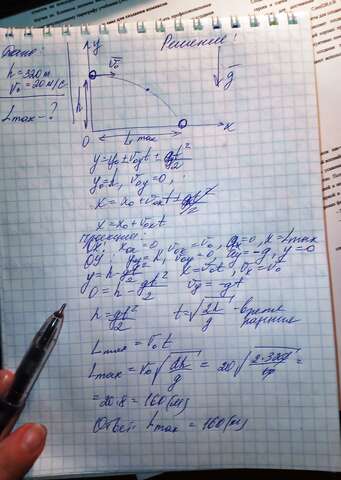 Дано:
h = 320 м
v₀ = 20 м/с
Lmax - ?
Решение!
y
v₀
g
h
0
Lmax
x
y = y₀ ± v₀yt ± gt²/2
y₀ = h, v₀y = 0,
x = x₀ + v₀xt
x = x₀ + v₀xt
Проекции:
OX: x₀ = 0, v₀x = v₀, gx = 0, x = Lmax
OY: y₀ = h, v₀y = 0, gy = -g, y = 0
y = h - gt²/2 x = v₀t, vx = v₀
0 = h - gt²/2 vy = -gt
h = gt²/2 t = √(2h/g) - время
падения
Lmax = v₀t
Lmax = v₀√(2h/g) = 20√(2·320/10) =
= 20·8 = 160 (м)
Ответ: Lmax = 160 (м)